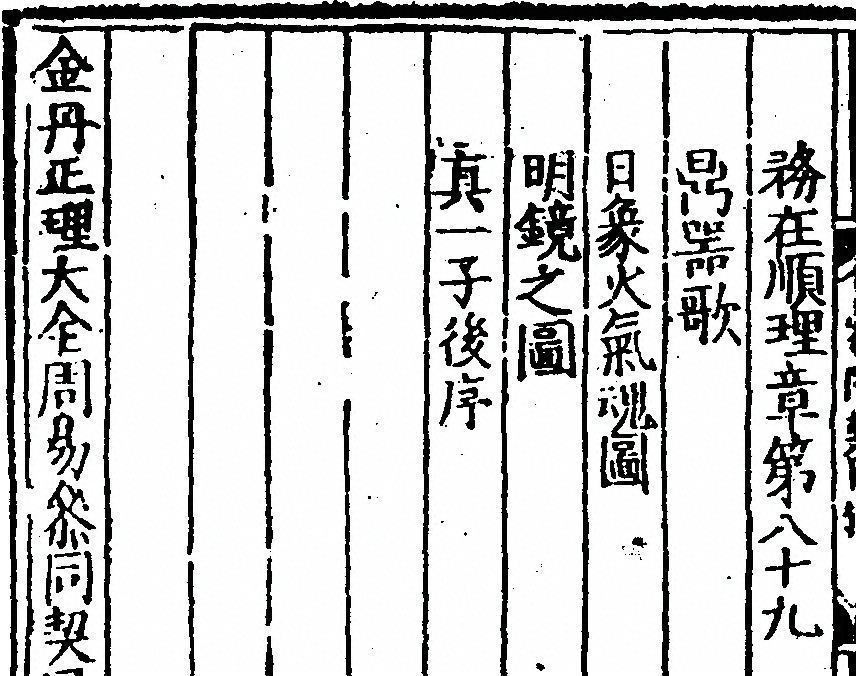 務在順理章第八十九
鼎器歌
日象火氣魂圖
明鏡之圖
真一子後序
金丹正理大全周易叅同契